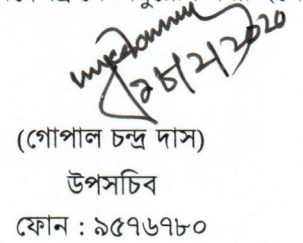 ২৮/২/২০২০
(গোপাল চন্দ্র দাস)
উপসচিব
ফোন : ৯৫৭৬৭৮০